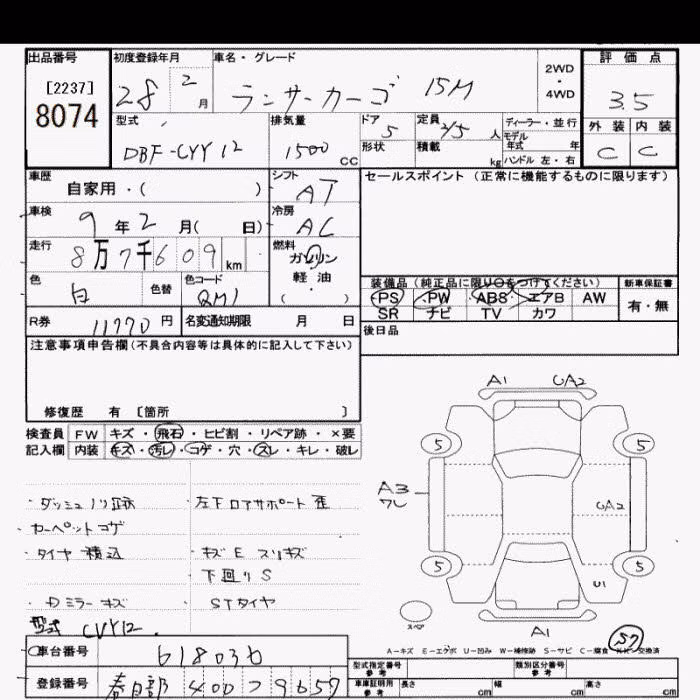 出品番号 初度登録年月 車名・グレード 評価点
[2237] 28 2月 ランサーカーゴ 15M 2WD・4WD 3.5
8074
型式 排気量 ドア 定員 ディーラー・並行 外装 内装
DBF-CVY12 1500CC 5 2/5人 モデル年式 年 C C
形状 積載 kg ハンドル 左・右
車歴 シフト セールスポイント(正常に機能するものに限ります)
自家用・( ) AT
車検 冷房
9年2月( 日) AC
走行 燃料
8万7千609km ガソリン
軽・油
( )
色 色替 色コード 装備品(純正品に限り○をつけてください) 新車保証書
白 QM1 PS PW ABS エアB AW 有・無
SR ナビ TV カワ
R券 11770円 名変通知期限 月 日 後日品
注意事項申告欄(不具合内容等は具体的に記入して下さい)
修復歴 有 [箇所 ]
検査員 FW キズ・飛石・ヒビ割・リペア跡・×要
記入欄 内装 キズ・汚レ・コゲ・穴・スレ・キレ・破レ
A1 GA2
5 5
A3
ワレ
GA2
5 5
U1
スペア
A1
・ダッシュノリ跡 ・左下ロアサポート歪
・カーペットコゲ
・タイヤ積込 ・キズE スリキズ
下回りS
・Dミラーキズ STタイヤ
型式 CVY12.
S7
A-キズ E-エクボ U-凹み W-補修跡 S-サビ C-腐食 XX-交換済
車台番号 618036
型式指定番号 参考 類別区分番号 参考
登録番号 春日部 400 ス9657
車庫証明用 参考 長さ cm 幅 cm 高さ cm